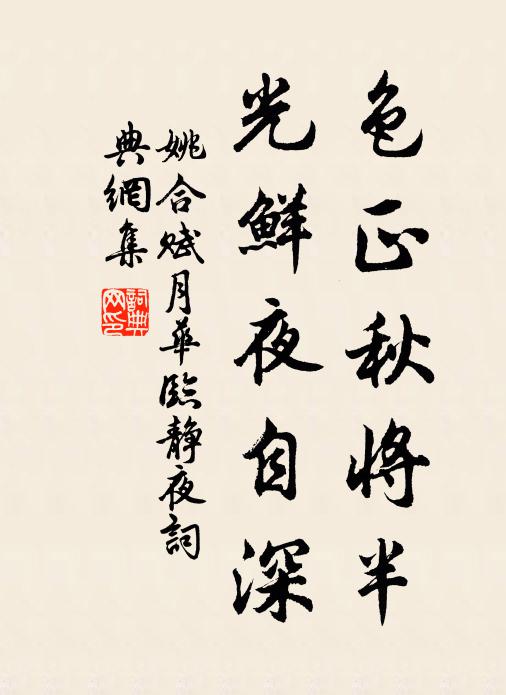 色正秋将半
光鮮夜自深
姚合賦月華臨靜夜詞
典網集
詞典網印